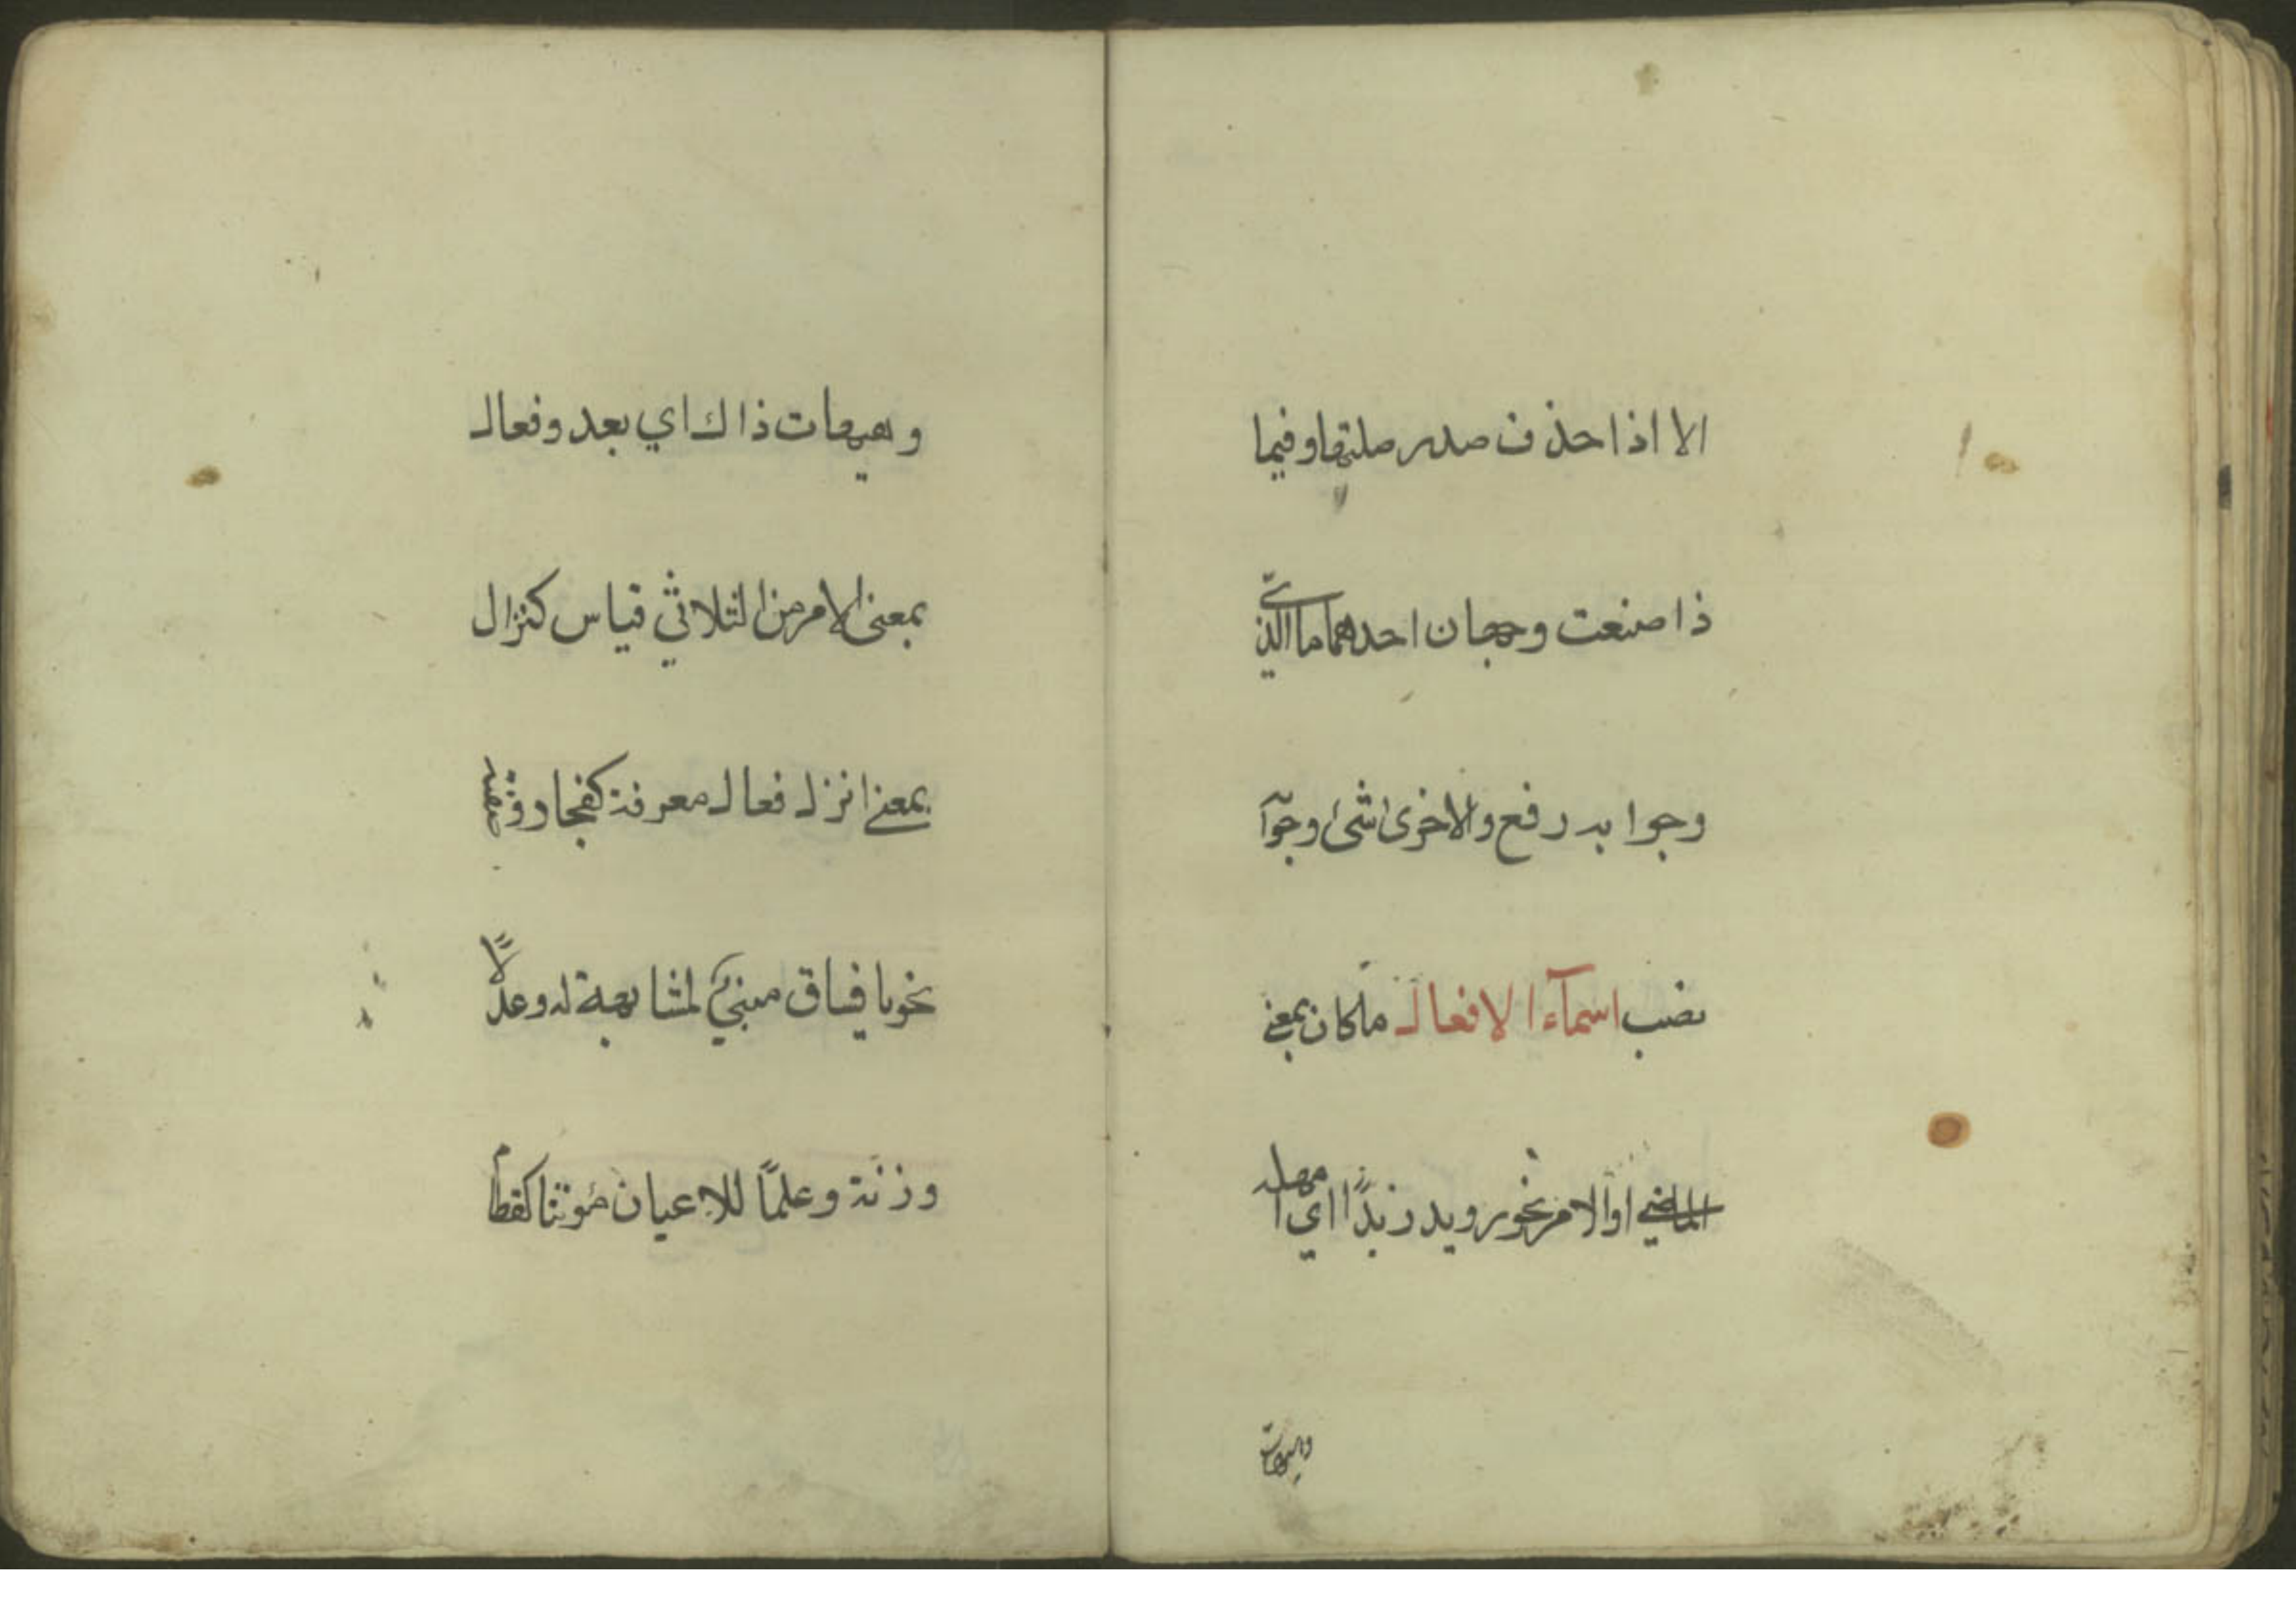 الا اذا حذف صدر صلتها وفيما
ذا صنعت وجهان احدهما ما الذي
وجوابه رفع والاخرى اشئ وجوابه
نصب اسمآء الافعال ما كان بمعنى
الماضي او الامر نحو رويد زيدًا اي امهله
وهيهات
وهيهات ذاك اي بعد وفعال
بمعنى الامر من الثلاثي قياس كنزال
بمعنى انزل فعال معرفة كفجار
نحو يا فساق مبني لمشابهة له وعدلًا
وزنة وعلمًا للاعيان مؤنثا كقطام